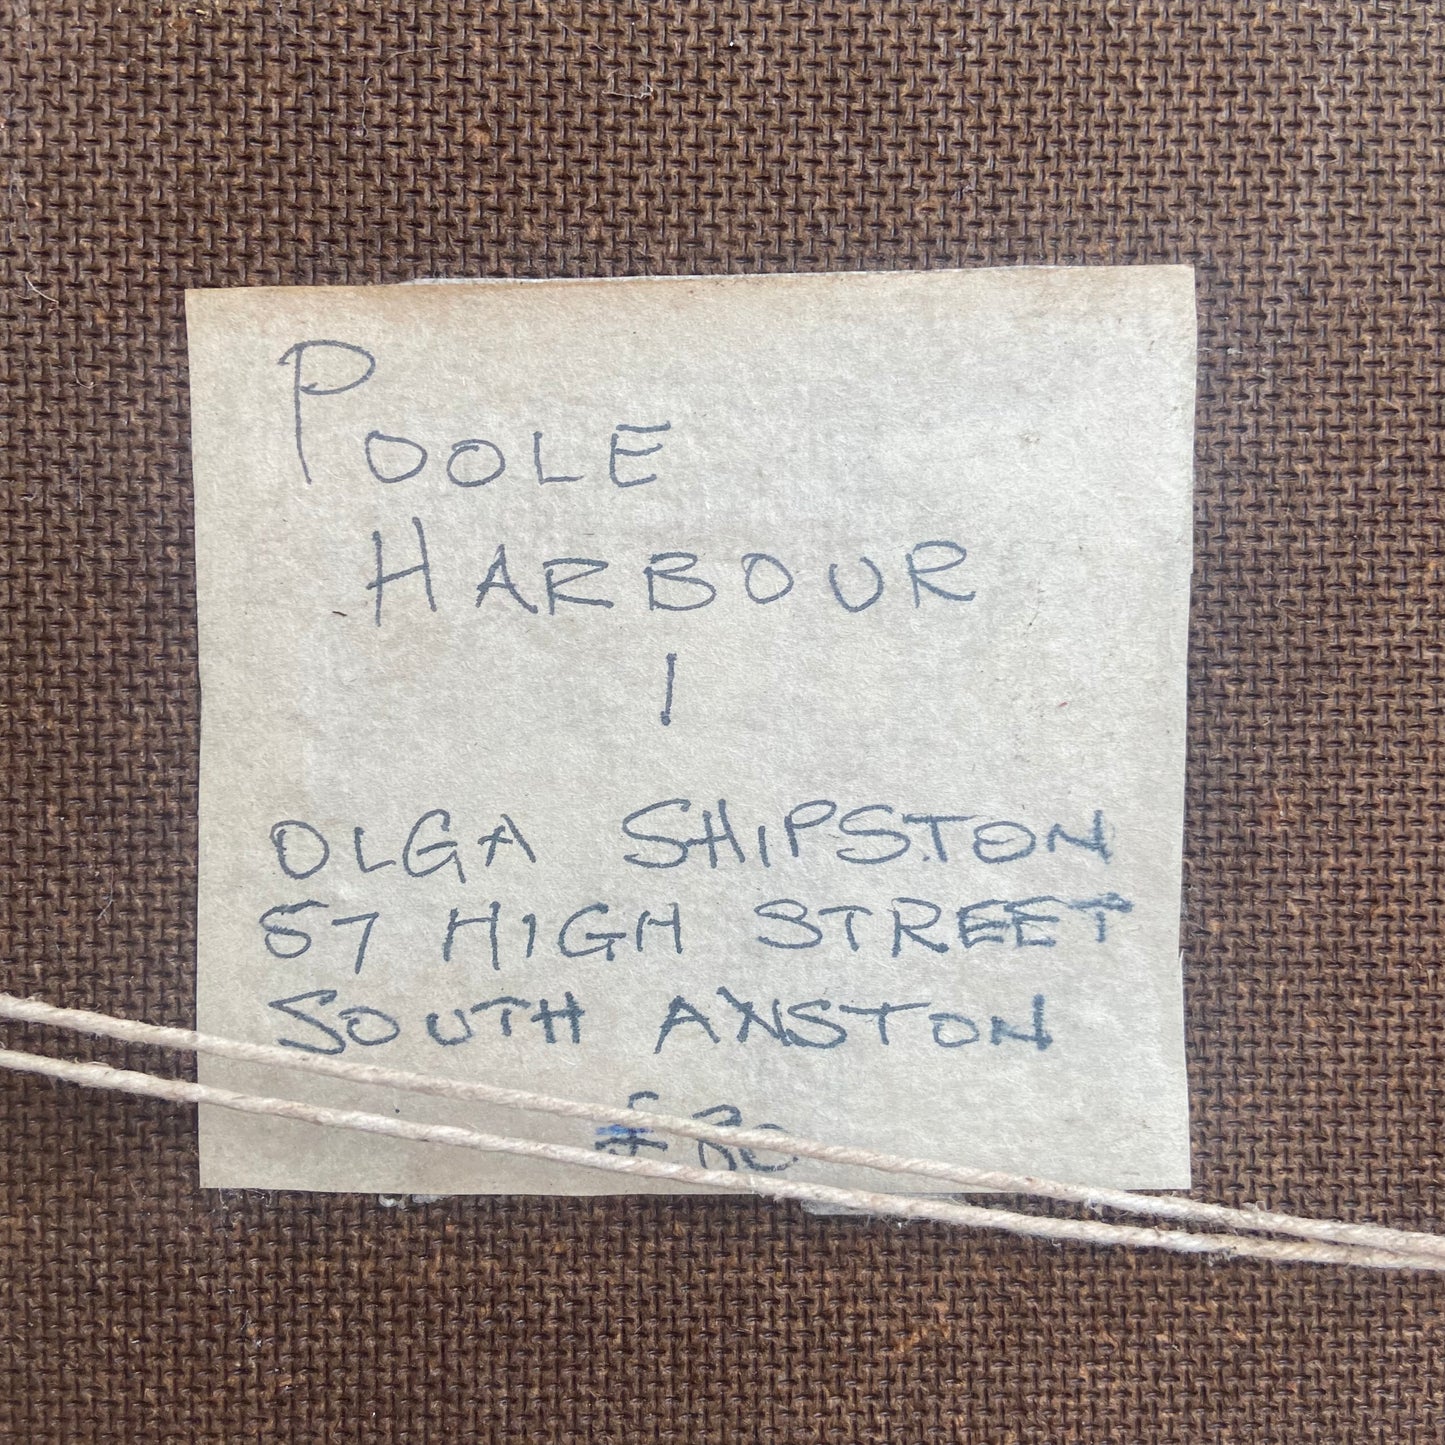 POOLE
HARBOUR
1
OLGA SHIPSTON
57 HIGH STREET
SOUTH ANSTON